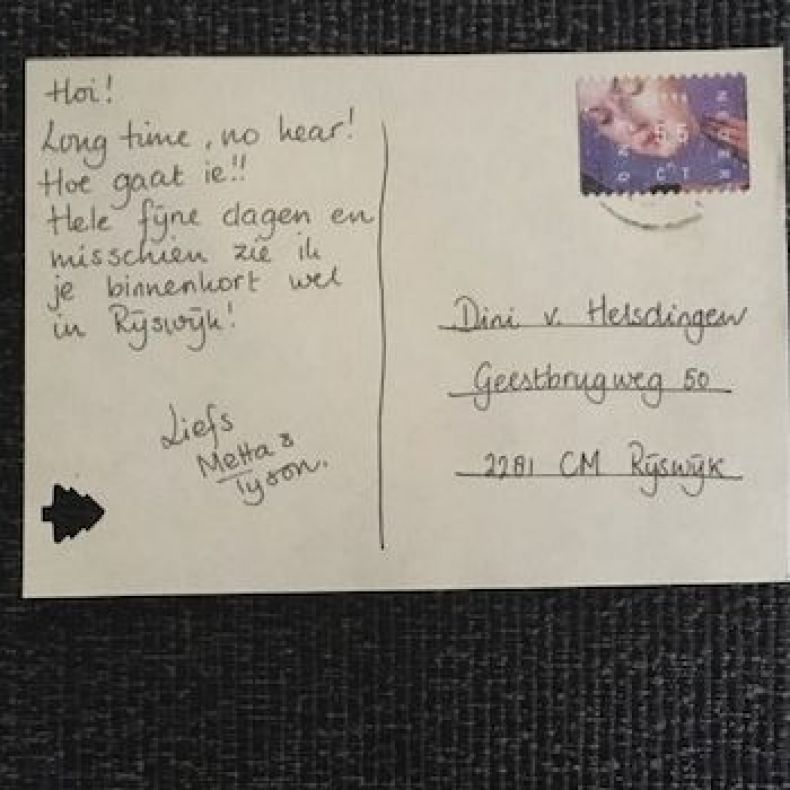 Hoi!
Long time, no hear!
Hoe gaat ie!!
Hele fijne dagen en
misschien zie ik
je binnenkort wel
in Rijswijk!
Liefs
Metta &
Tyson.
55
CT
Dini v. Helsdingen
Geestbrugweg 50
2281 CM Rijswijk